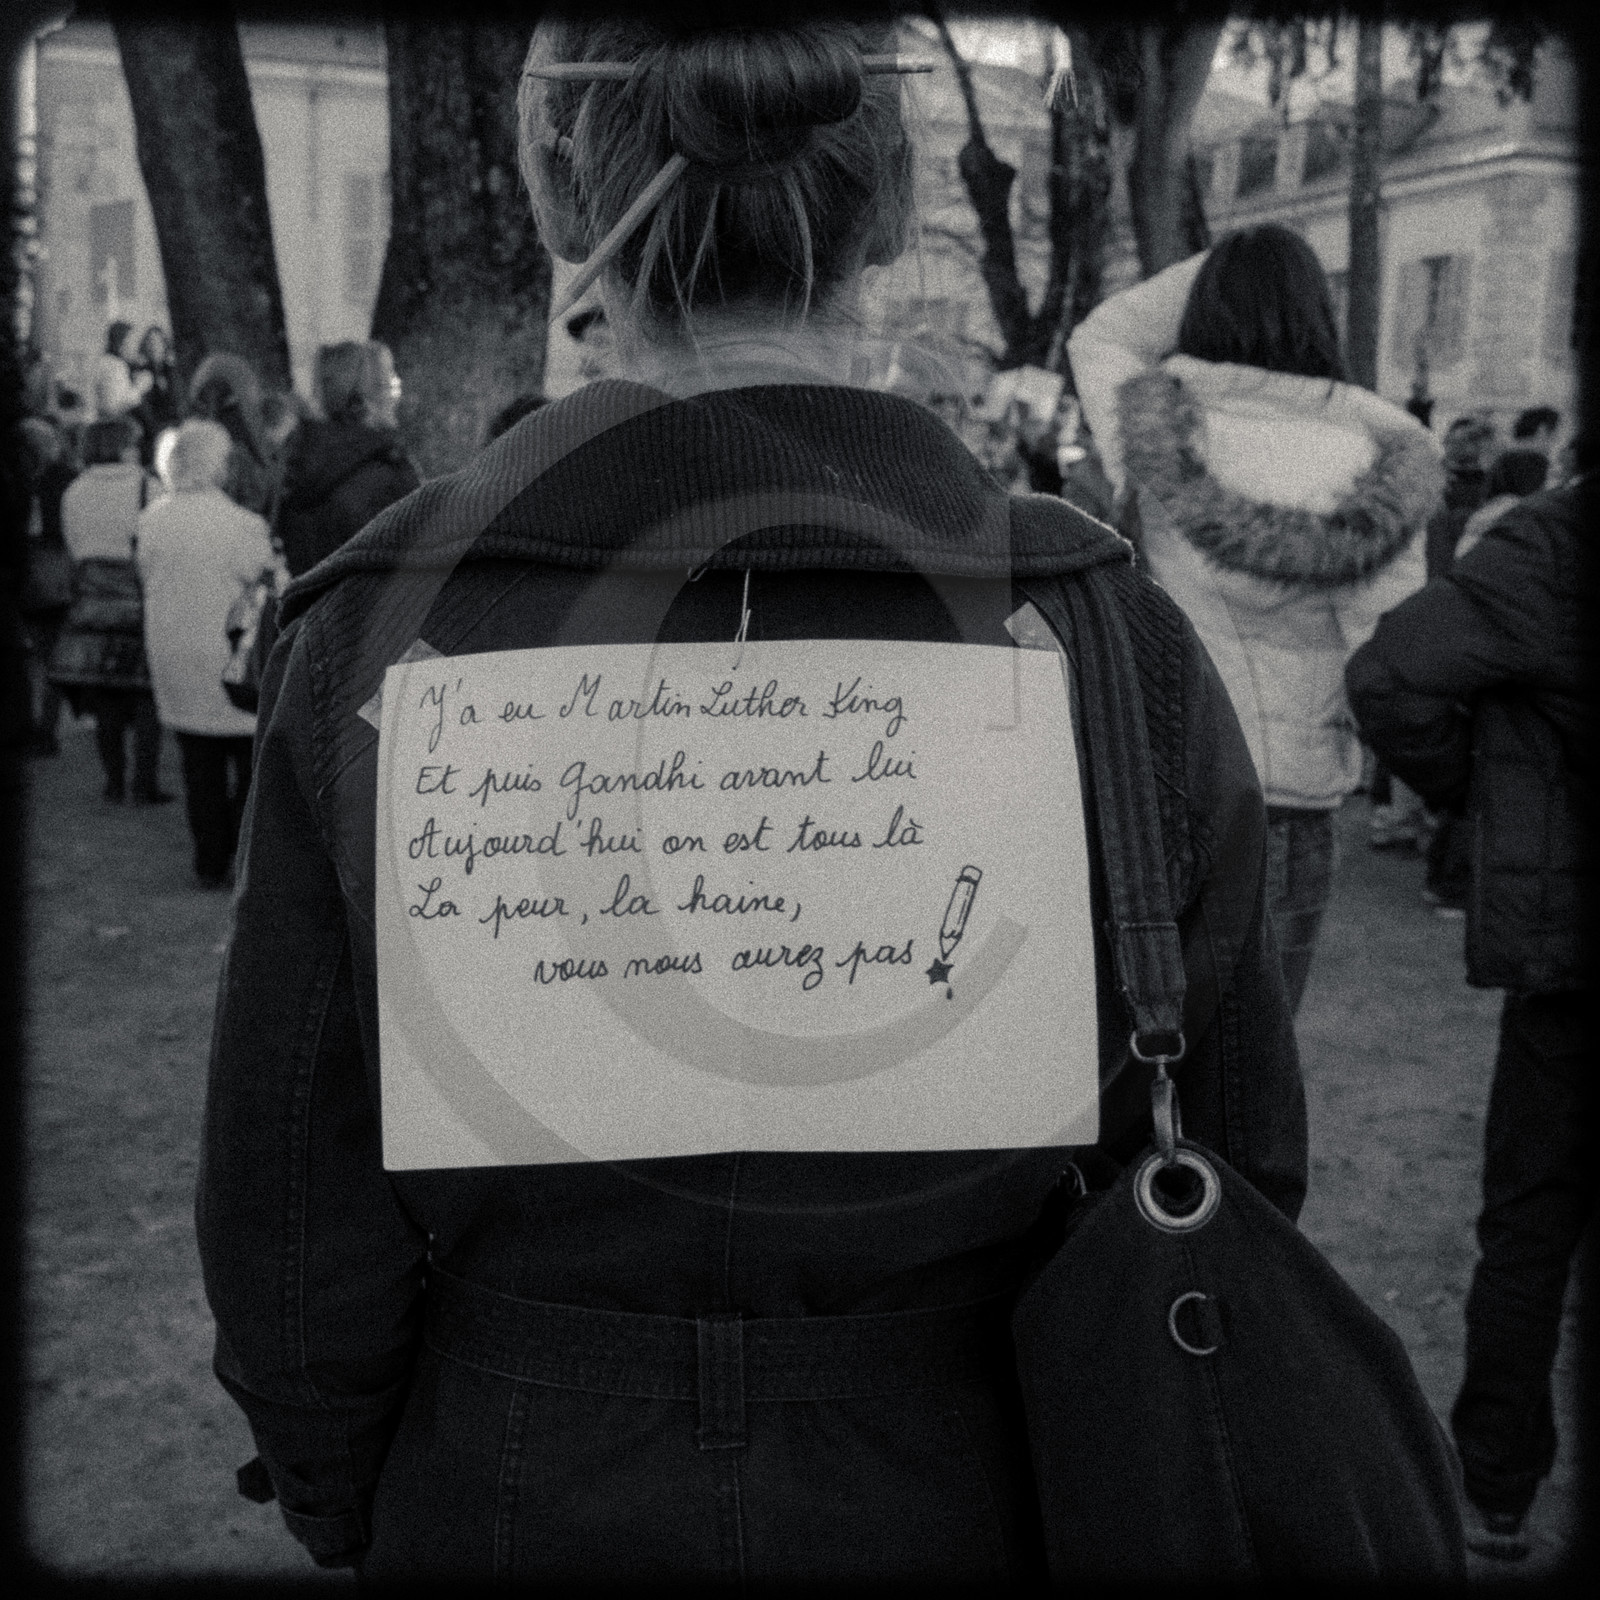 Y'a eu Martin Luther King
Et puis Gandhi avant lui
Aujourd'hui on est tous là
La peur, la haine,
vous nous aurez pas